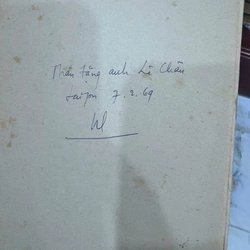 Mến tặng anh Lê Chân
Saigon 7.2.69